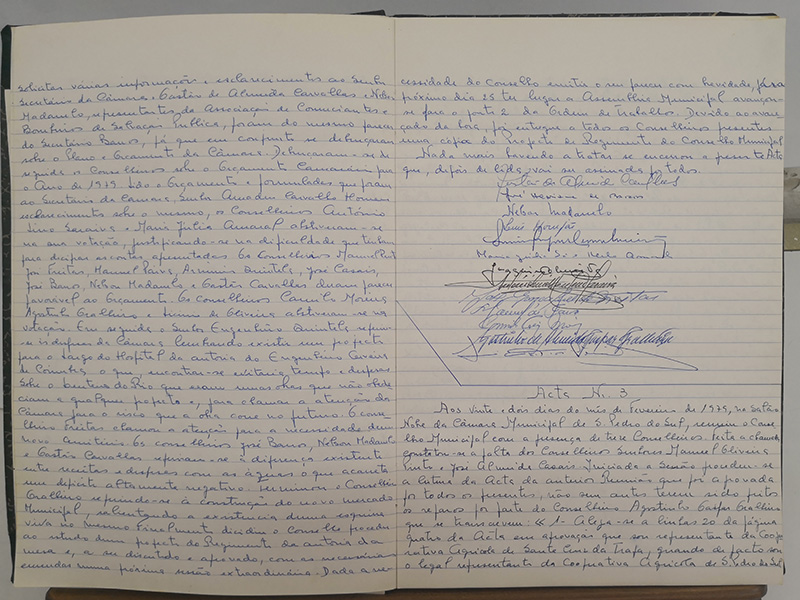 solicitar várias informações e esclarecimentos ao Senhor
Secretário da Câmara. Gastão de Almeida Carvalhas e Nelson
Madanelo, representantes da Associação de Comerciantes e
Bombeiros de Salvação Pública, foram do mesmo parecer
do Secretário Barros, já que em conjunto se debruçaram
sobre o Plano e Orçamento da Câmara. Debruçaram-se de
seguida os Conselheiros sobre o Orçamento Camarário para
o Ano de 1979. Lido o Orçamento e formuladas que foram
ao Secretário da Câmara, Senhor Amadeu Carvalho Homem
esclarecimentos sobre o mesmo, os Conselheiros António
Lino e Maria Júlia Amaral abstiveram-se
na sua votação, justificando-se na dificuldade que tinham
para dissipar as contas apresentadas. Os Conselheiros Manuel
Freitas, Manuel Paiva, Arménio Quintela, José Casais,
José Barros, Nelson Madanelo e Gastão Carvalhas deram parecer
favorável ao Orçamento. Os Conselheiros Camilo Moreira
Agostinho Gralheiro e de Oliveira abstiveram-se na
votação. Em seguida o Senhor Engenheiro Quintela
da Câmara lembrando existir um projecto
para o Largo do Hospital da autoria do Engenheiro
de Coimbra o que, encontrar-se evitaria tempo e despesas
Sobre o Rio que eram umas obras que não obede
ciam a qualquer projecto e, para chamar a atenção da
Câmara para o risco que a obra corre no futuro. O conse
lheiro Freitas chamou a atenção para a necessidade dum
novo Os conselheiros José Barros, Nelson Madanelo
e Gastão Carvalhas referiram-se à diferença existente
entre receitas e despesas com as águas o que acarreta
um depósito altamente negativo. Terminou o Conselheiro
Gralheiro referindo-se à construção do novo mercado
Municipal, salientando a existência duma esquina
viva no mesmo. Finalmente decidiu o Conselho proceder
ao estudo dum projecto de Regimento da autoria da
mesa e, a ser discutido e aprovado, com as necessárias
emendas numa próxima sessão extraordinária. Dada a ne-
cessidade do Conselho emitir o seu parecer com brevidade, já
próximo dia 25 ter lugar a Assembleia Municipal avançou-
se para o ponto 2 da Ordem de Trabalhos. Devido ao avan
çado da hora, foi entregue a todos os Conselheiros presentes
uma cópia do Projecto de Regimento do Conselho Municipal
Nada mais havendo a tratar se encerrou a presente Acta
que, depois de lida, vai ser assinada por todos.
Gastão de Almeida Carvalhas
José
Nelson Madanelo
Maria Júlia Amaral
Agostinho de Almeida Gaspar Gralheiro
Acta N. 3
Aos vinte e dois dias do mês de Fevereiro de 1979, no Salão
Nobre da Câmara Municipal de S. Pedro do Sul, reuniu o Conse
lho Municipal com a presença de treze Conselheiros. Feita a chamada
constatou-se a falta dos Conselheiros Senhores Manuel Oliveira
Pinto e José Almeida Casais. Iniciada a Sessão procedeu-se
à leitura da Acta da anterior Reunião que foi aprovada
por todos os presentes, não sem antes terem sido feitos
os reparos por parte do Conselheiro Agostinho Gaspar Gralheiro
que se transcrevem: 1- Alega-se a linhas 20 da página
quatro da Acta em aprovação que sou representante da Coope
rativa Agrícola de Santa Cruz da Trapa, quando de facto sou
o legal representante da Cooperativa Agrícola de S. Pedro do Sul